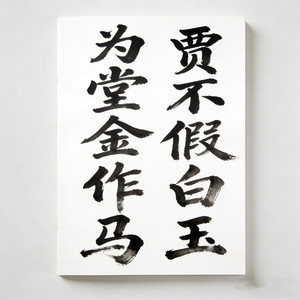 贾不假白玉
为堂金作马